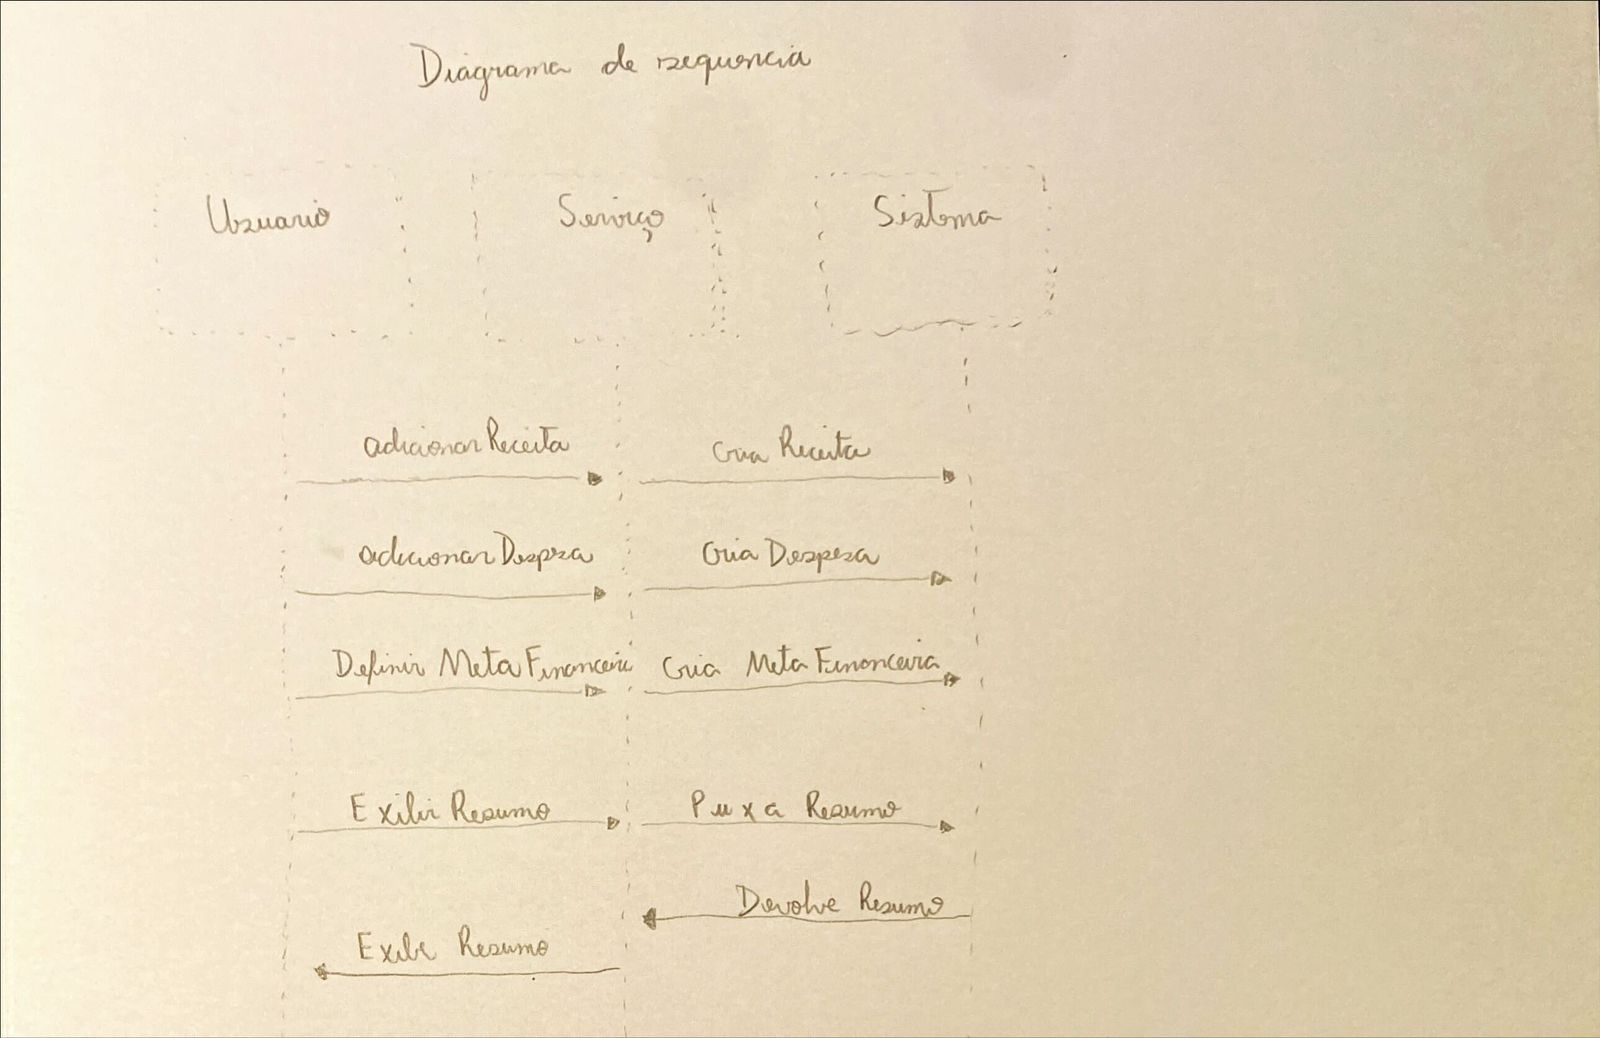 Diagrama de sequencia
Usuario
Serviço
Sistema
adicionar Receita
Cria Receita
adicionar Despesa
Cria Despesa
Definir Meta Financeir
Cria Meta Financeira
Exibir Resumo
Puxa Resumo
Devolve Resumo
Exibe Resumo